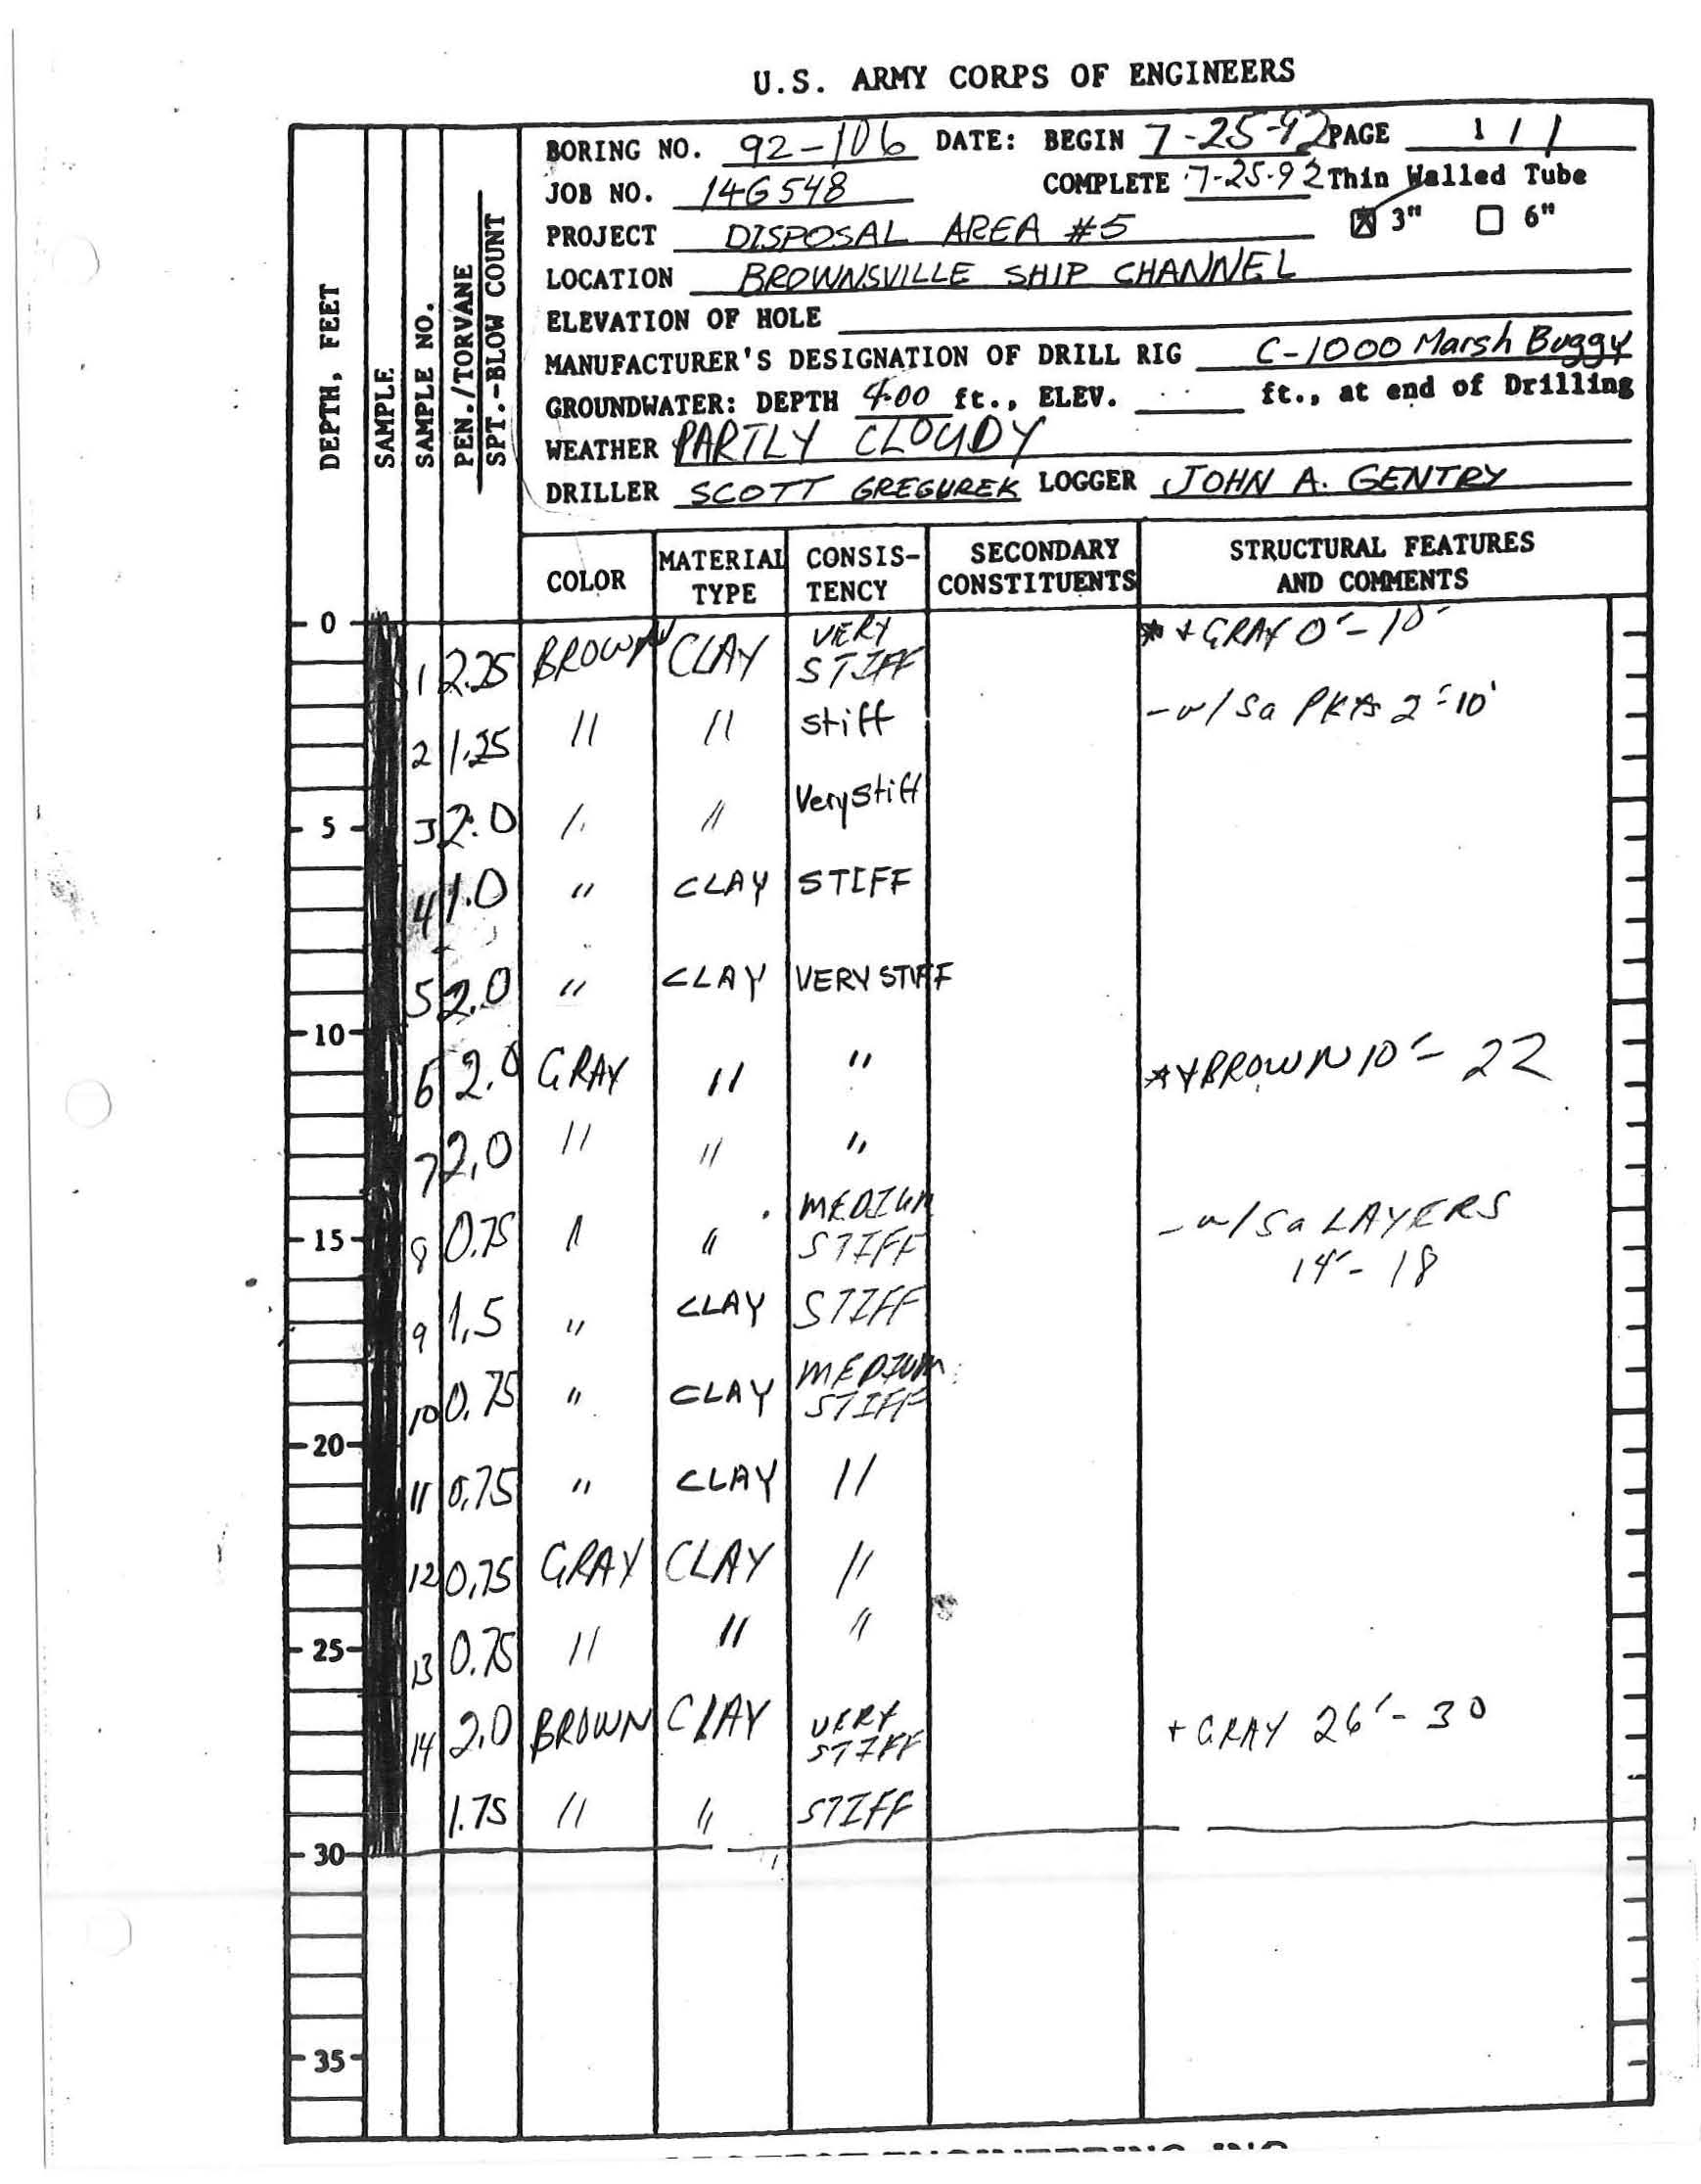 U.S. ARMY CORPS OF ENGINEERS
BORING NO. 92-106 DATE: BEGIN 7-25-92 PAGE 1 / 1
JOB NO. 14G548 COMPLETE 7-25-92 Thin Walled Tube
PROJECT DISPOSAL AREA #5 3" 6"
LOCATION BROWNSVILLE SHIP CHANNEL
ELEVATION OF HOLE
MANUFACTURER'S DESIGNATION OF DRILL RIG C-1000 Marsh Buggy
GROUNDWATER: DEPTH 4.00 ft., ELEV. ft., at end of Drilling
WEATHER PARTLY CLOUDY
DRILLER SCOTT GREGUREK LOGGER JOHN A. GENTRY
DEPTH, FEET
SAMPLE
SAMPLE NO.
PEN./TORVANE
SPT.-BLOW COUNT
COLOR MATERIAL TYPE CONSIS-TENCY SECONDARY CONSTITUENTS STRUCTURAL FEATURES AND COMMENTS
0
* + GRAY 0'-10'
1 2.25 BROWN CLAY VERY STIFF
-w/ Sa PKTS 2'-10'
2 1.25 " " stiff
5
3 2.0 " " Very stiff
4 1.0 " CLAY STIFF
5 2.0 " CLAY VERY STIFF
10
6 2.0 GRAY " " * + BROWN 10'- 22
7 2.0 " " "
15
8 0.75 " " MEDIUM STIFF -w/ Sa LAYERS
14'- 18
9 1.5 " CLAY STIFF
10 0.75 " CLAY MEDIUM STIFF
20
11 0.75 " CLAY "
12 0.75 GRAY CLAY "
25
13 0.75 " " "
14 2.0 BROWN CLAY VERY STIFF + GRAY 26'- 30
1.75 " " STIFF
30
35